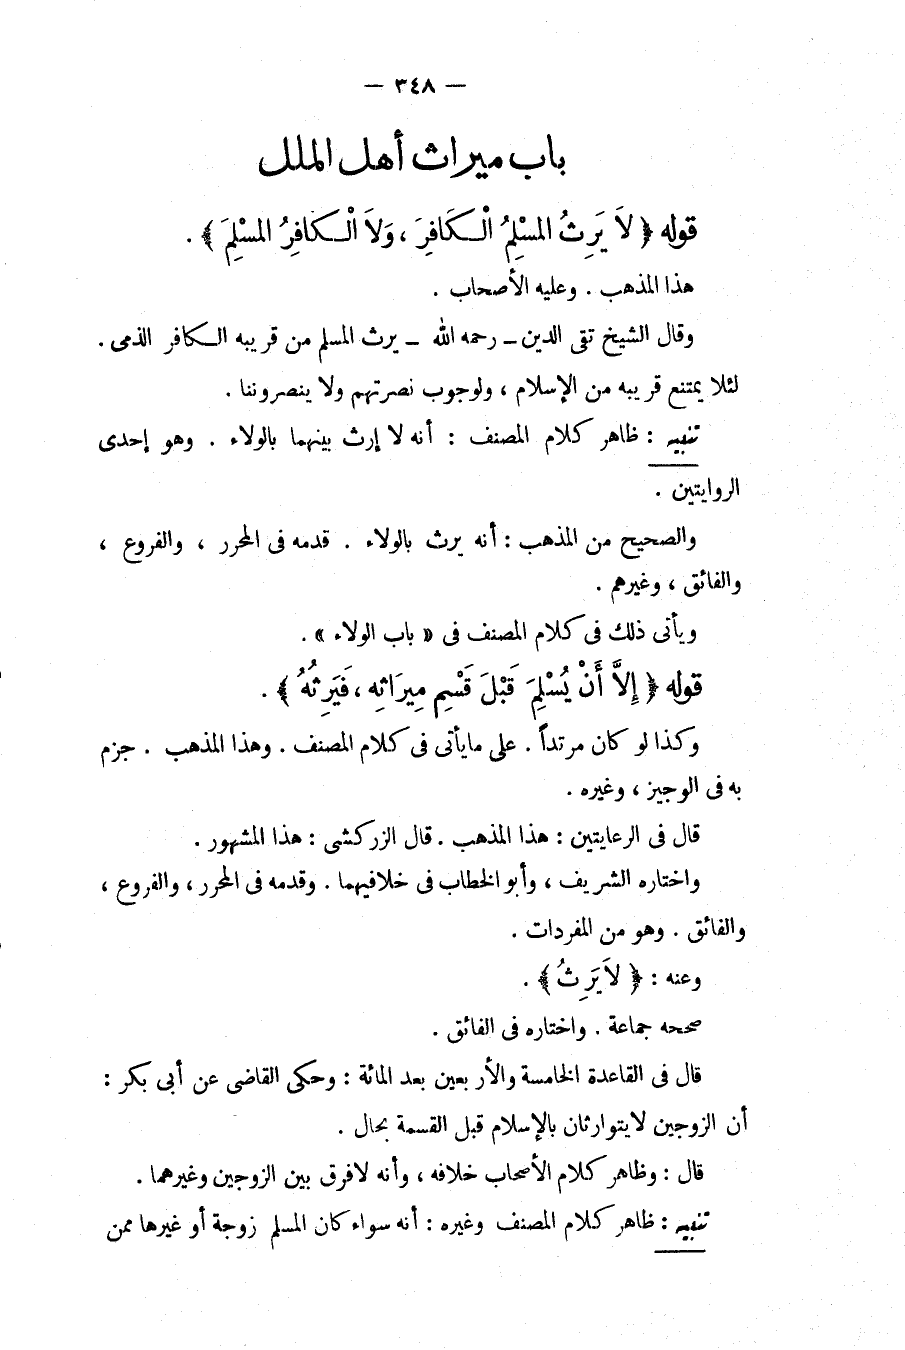 — ٣٤٨ —
باب ميراث أهل الملل
قوله ﴿ لاَ يَرِثُ المسْلِمُ الْكَافِرَ ، وَلاَ الْكافِرُ المسْلِمَ ﴾ .
هذا المذهب . وعليه الأصحاب .
وقال الشيخ تقى الدين ـ رحمه الله ـ يرث المسلم من قريبه الكافر الذمى .
لئلا يمتنع قريبه من الإسلام ، ولوجوب نصرتهم ولا ينصروننا .
تنبيه : ظاهر كلام المصنف : أنه لا إرث بينهما بالولاء . وهو إحدى
الروايتين .
والصحيح من المذهب : أنه يرث بالولاء . قدمه فى المحرر ، والفروع ،
والفائق ، وغيرهم .
ويأتى ذلك فى كلام المصنف فى « باب الولاء » .
قوله ﴿ إِلاَّ أَنْ يُسْلِمَ قَبْلَ قَسْمِ مِيرَاثِهِ ، فَيَرِثُهُ ﴾ .
وكذا لو كان مرتداً . على مايأتى فى كلام المصنف . وهذا المذهب . جزم
به فى الوجيز ، وغيره .
قال فى الرعايتين : هذا المذهب . قال الزركشى : هذا المشهور .
واختاره الشريف ، وأبو الخطاب فى خلافيهما . وقدمه فى المحرر ، والفروع ،
والفائق . وهو من المفردات .
وعنه : ﴿ لاَ يَرِثُ ﴾ .
صححه جماعة . واختاره فى الفائق .
قال فى القاعدة الخامسة والأربعين بعد المائة : وحكى القاضى عن أبى بكر :
أن الزوجين لايتوارثان بالإسلام قبل القسمة بحال .
قال : وظاهر كلام الأصحاب خلافه ، وأنه لافرق بين الزوجين وغيرهما .
تنبيه : ظاهر كلام المصنف وغيره : أنه سواء كان المسلم زوجة أو غيرها ممن